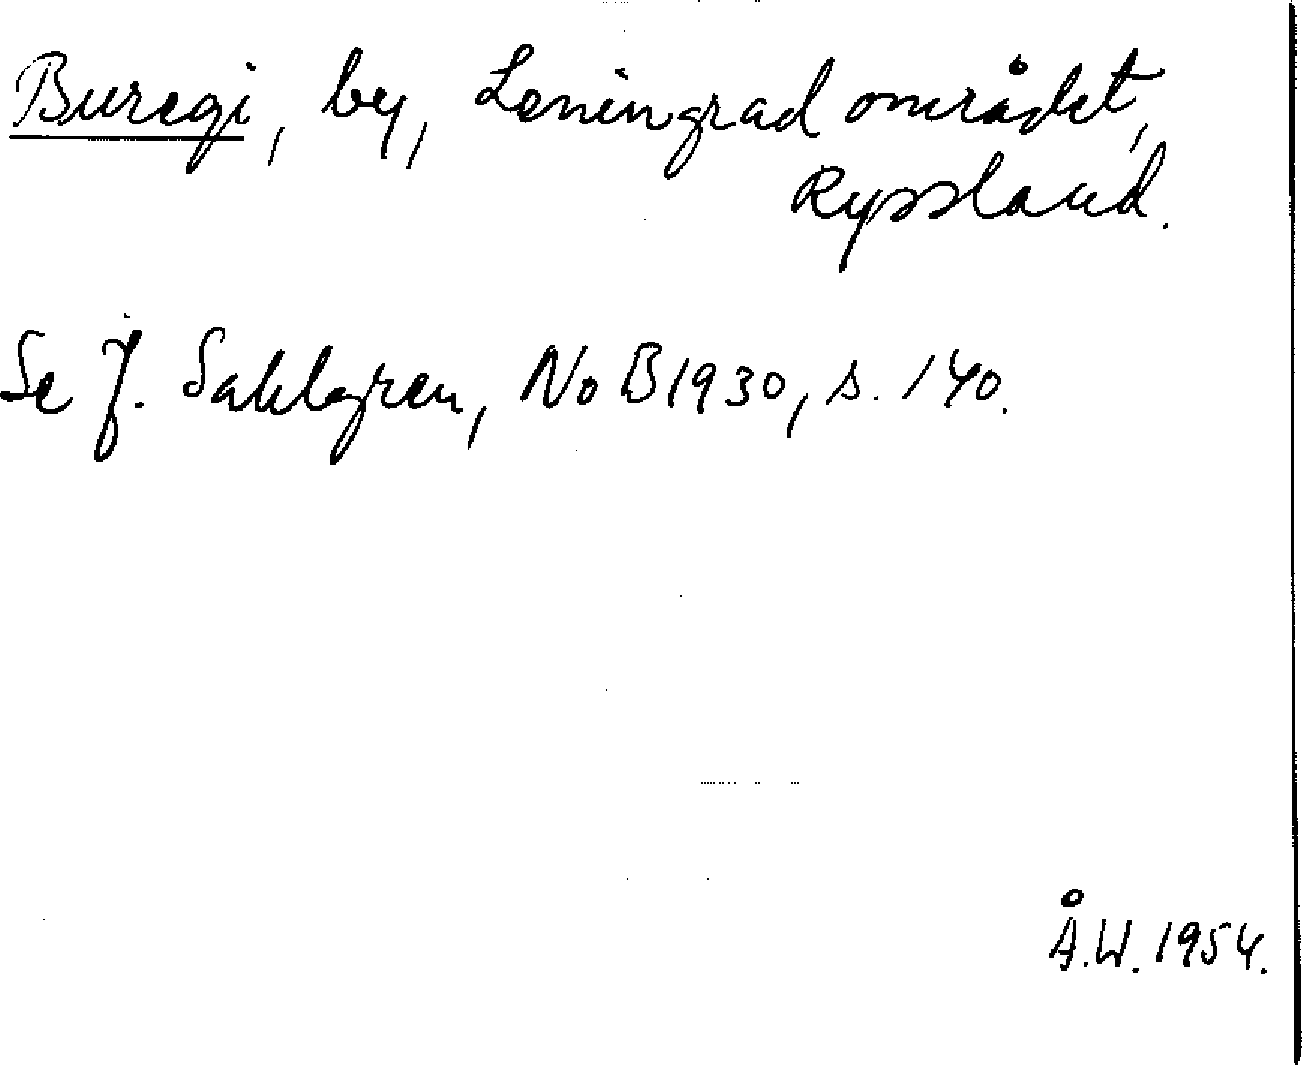 Buregi, by, Leningradområdet,
Ryssland.
Se J. Sahlgren, NoB 1930, s. 140.
Å.W. 1954.